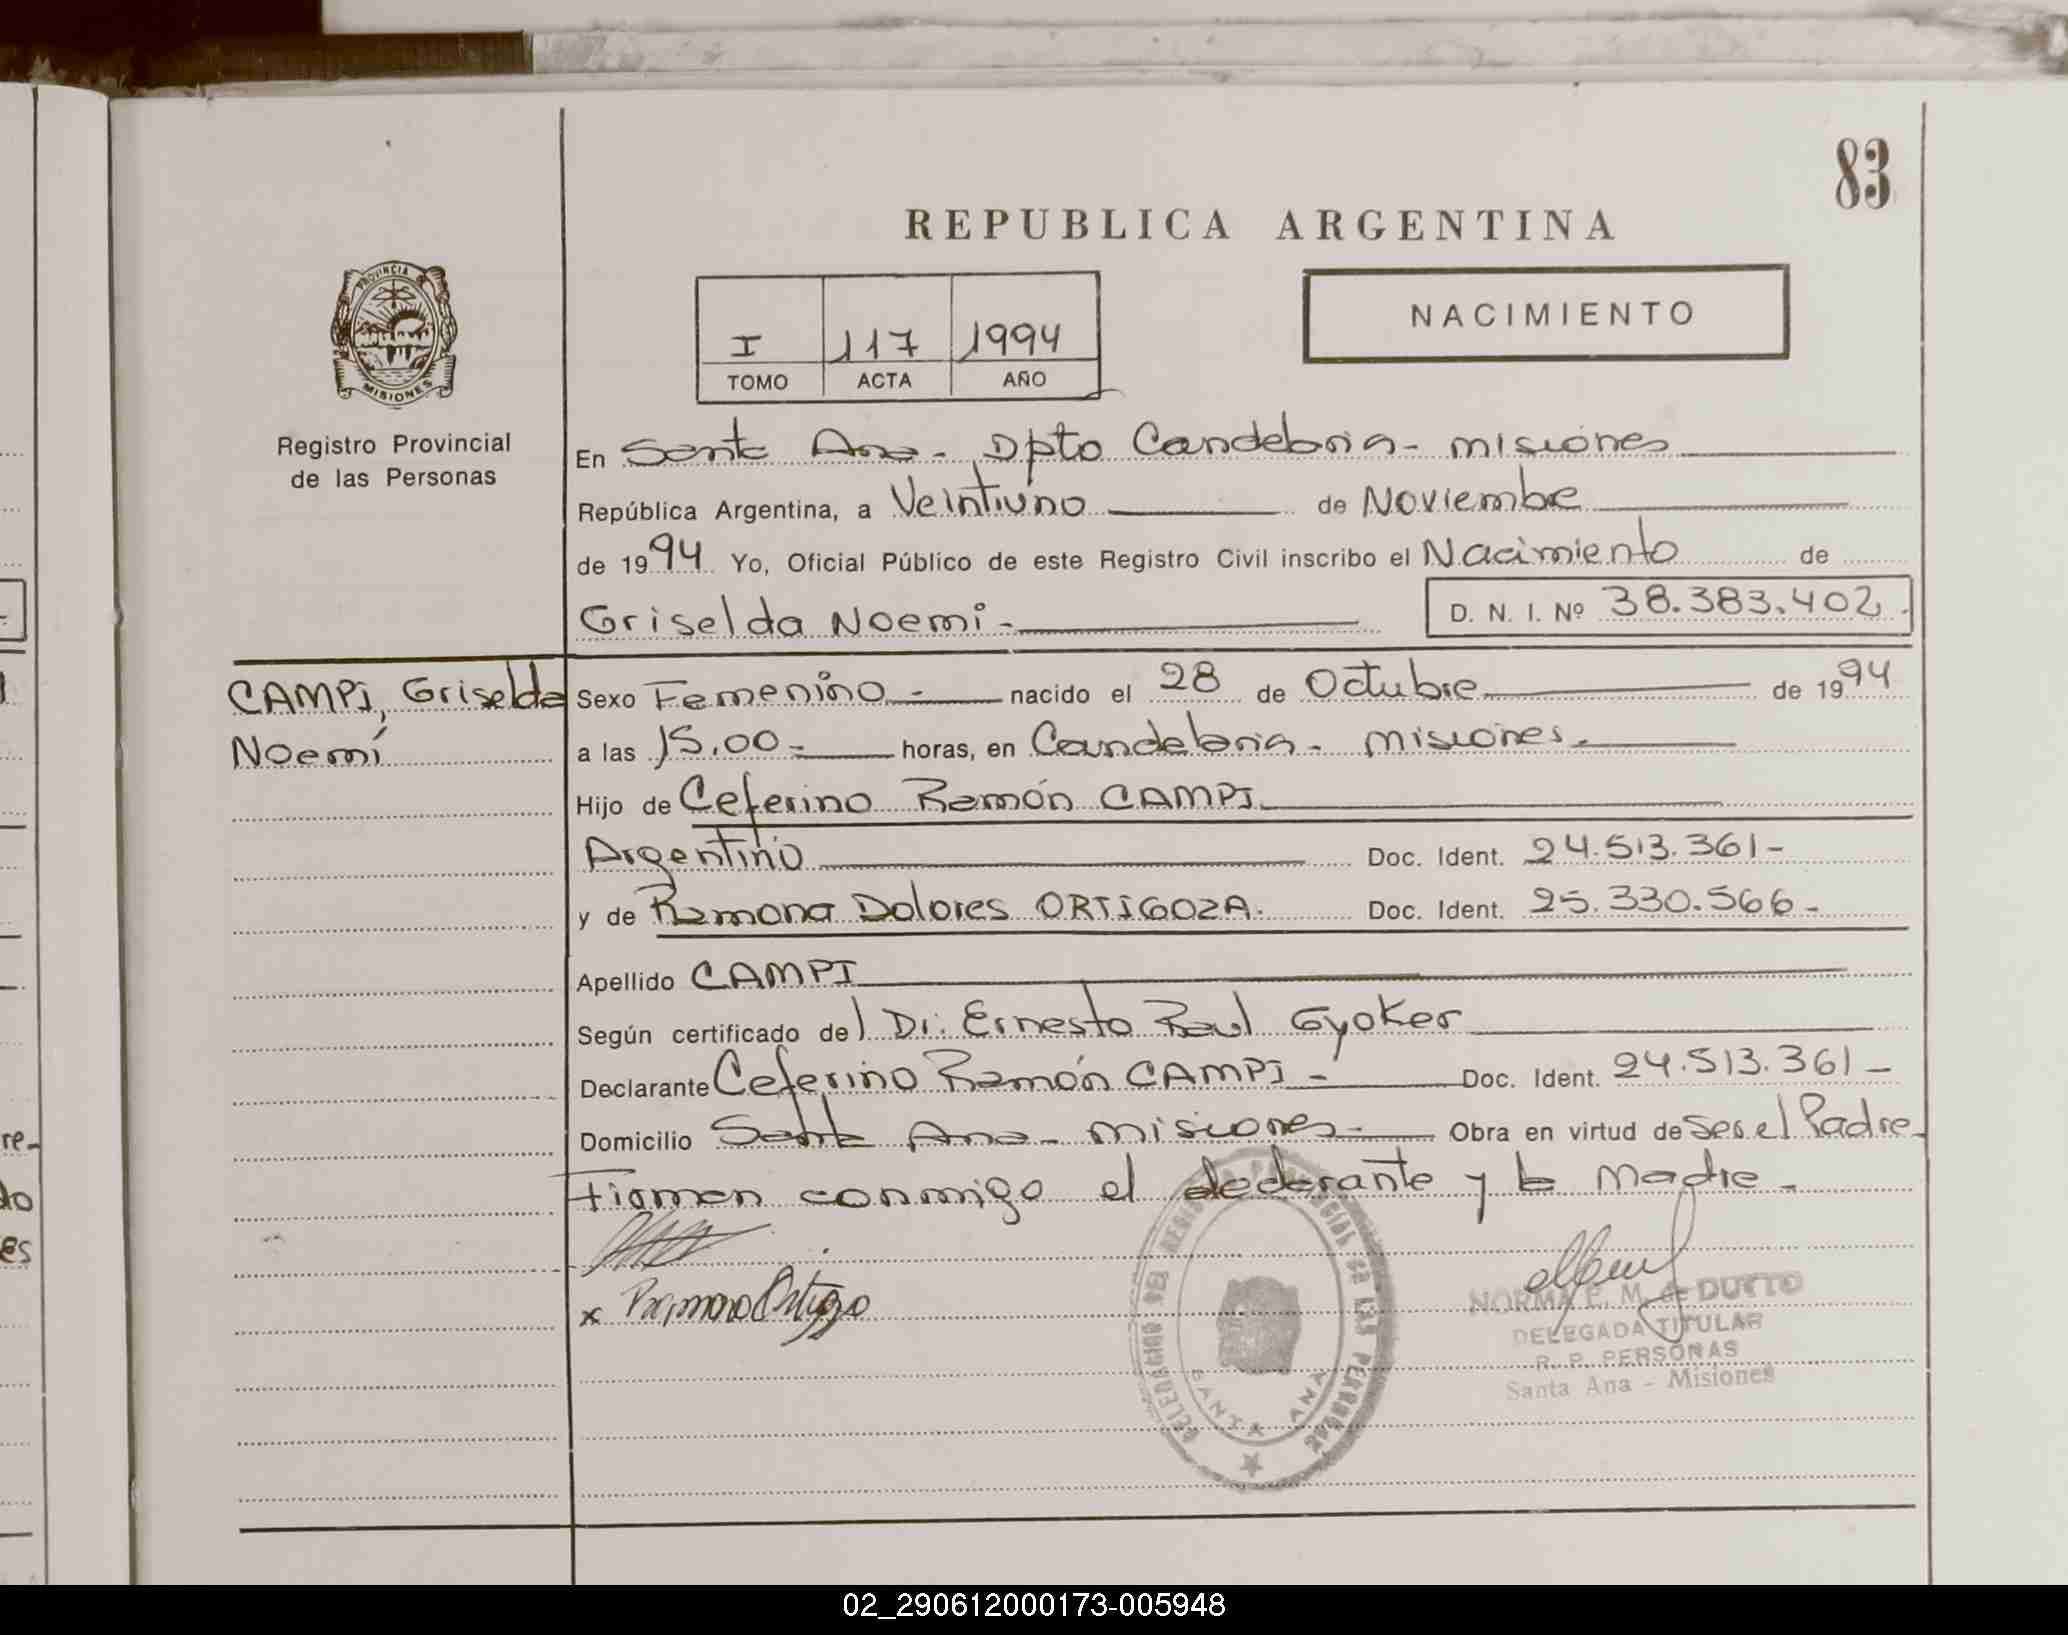 83
REPUBLICA ARGENTINA
PROVINCIA
MISIONES
I 117 1994
TOMO ACTA AÑO
NACIMIENTO
Registro Provincial
de las Personas
En Santa Ana - Dpto Candelaria - Misiones
República Argentina, a Veintiuno de Noviembre
de 1994 Yo, Oficial Público de este Registro Civil inscribo el Nacimiento de
Griselda Noemi - D. N. I. Nº 38.383.402.
CAMPI, Griselda
Noemí
Sexo Femenino - nacido el 28 de Octubre de 1994
a las 15.00 - horas, en Candelaria - Misiones -
Hijo de Ceferino Ramón CAMPI
Argentino Doc. Ident. 24.513.361 -
y de Ramona Dolores ORTIGOZA. Doc. Ident. 25.330.566 -
Apellido CAMPI
Según certificado del Dr. Ernesto Raul Gyoker
Declarante Ceferino Ramón CAMPI - Doc. Ident. 24.513.361 -
Domicilio Santa Ana - Misiones - Obra en virtud de Ser el Padre -
Firman conmigo el declarante y la Madre -
x Ramona Ortigoza
DELEGACION DEL REGISTRO PROVINCIAL DE LAS PERSONAS
SANTA ANA
NORMA E. M. de DUTTO
DELEGADA TITULAR
R. P. PERSONAS
Santa Ana - Misiones
re-
do
es
02_290612000173-005948